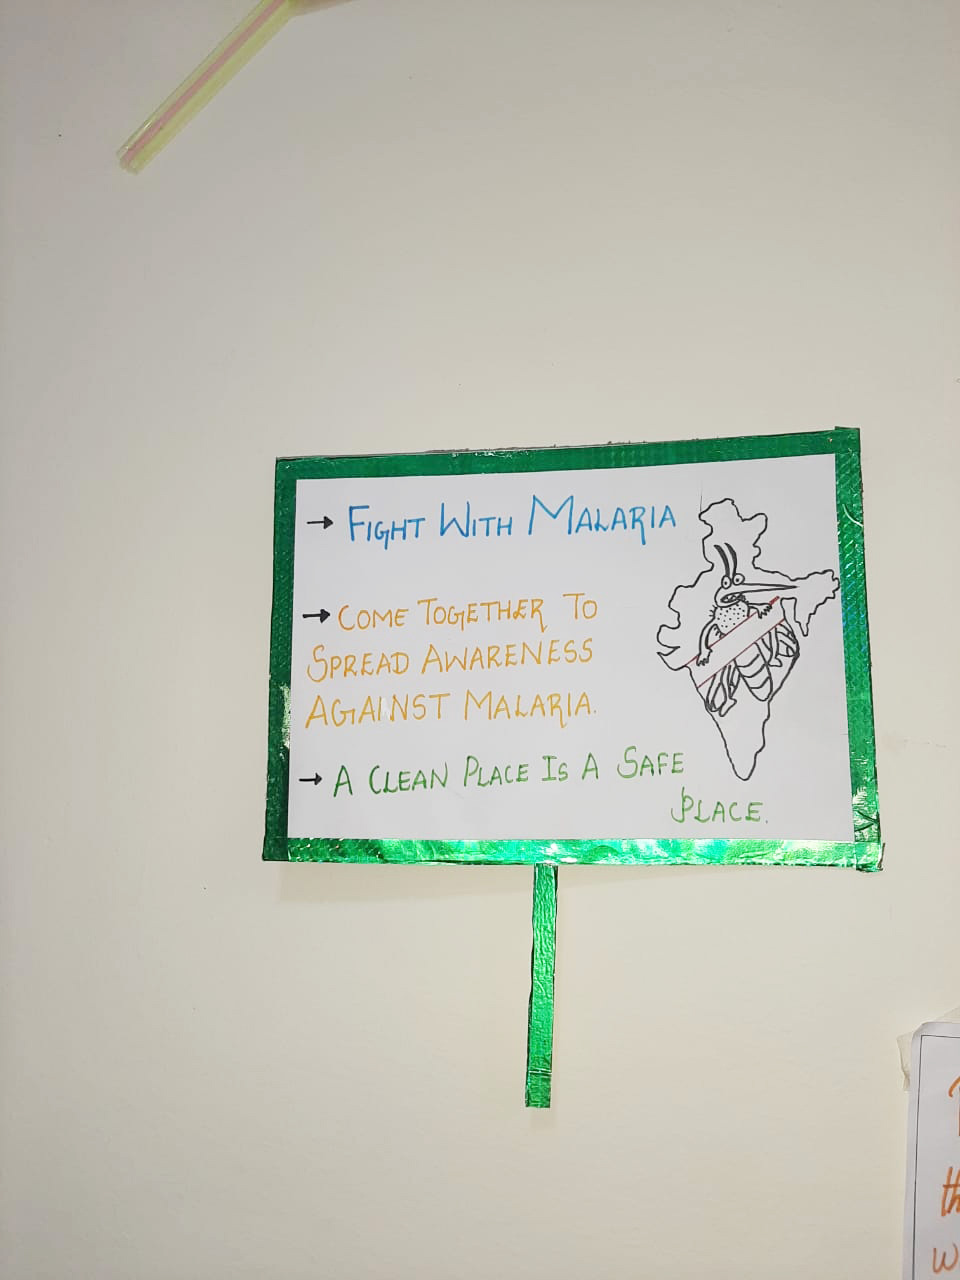 → FIGHT WITH MALARIA
→ COME TOGETHER TO
SPREAD AWARENESS
AGAINST MALARIA.
→ A CLEAN PLACE IS A SAFE
PLACE.